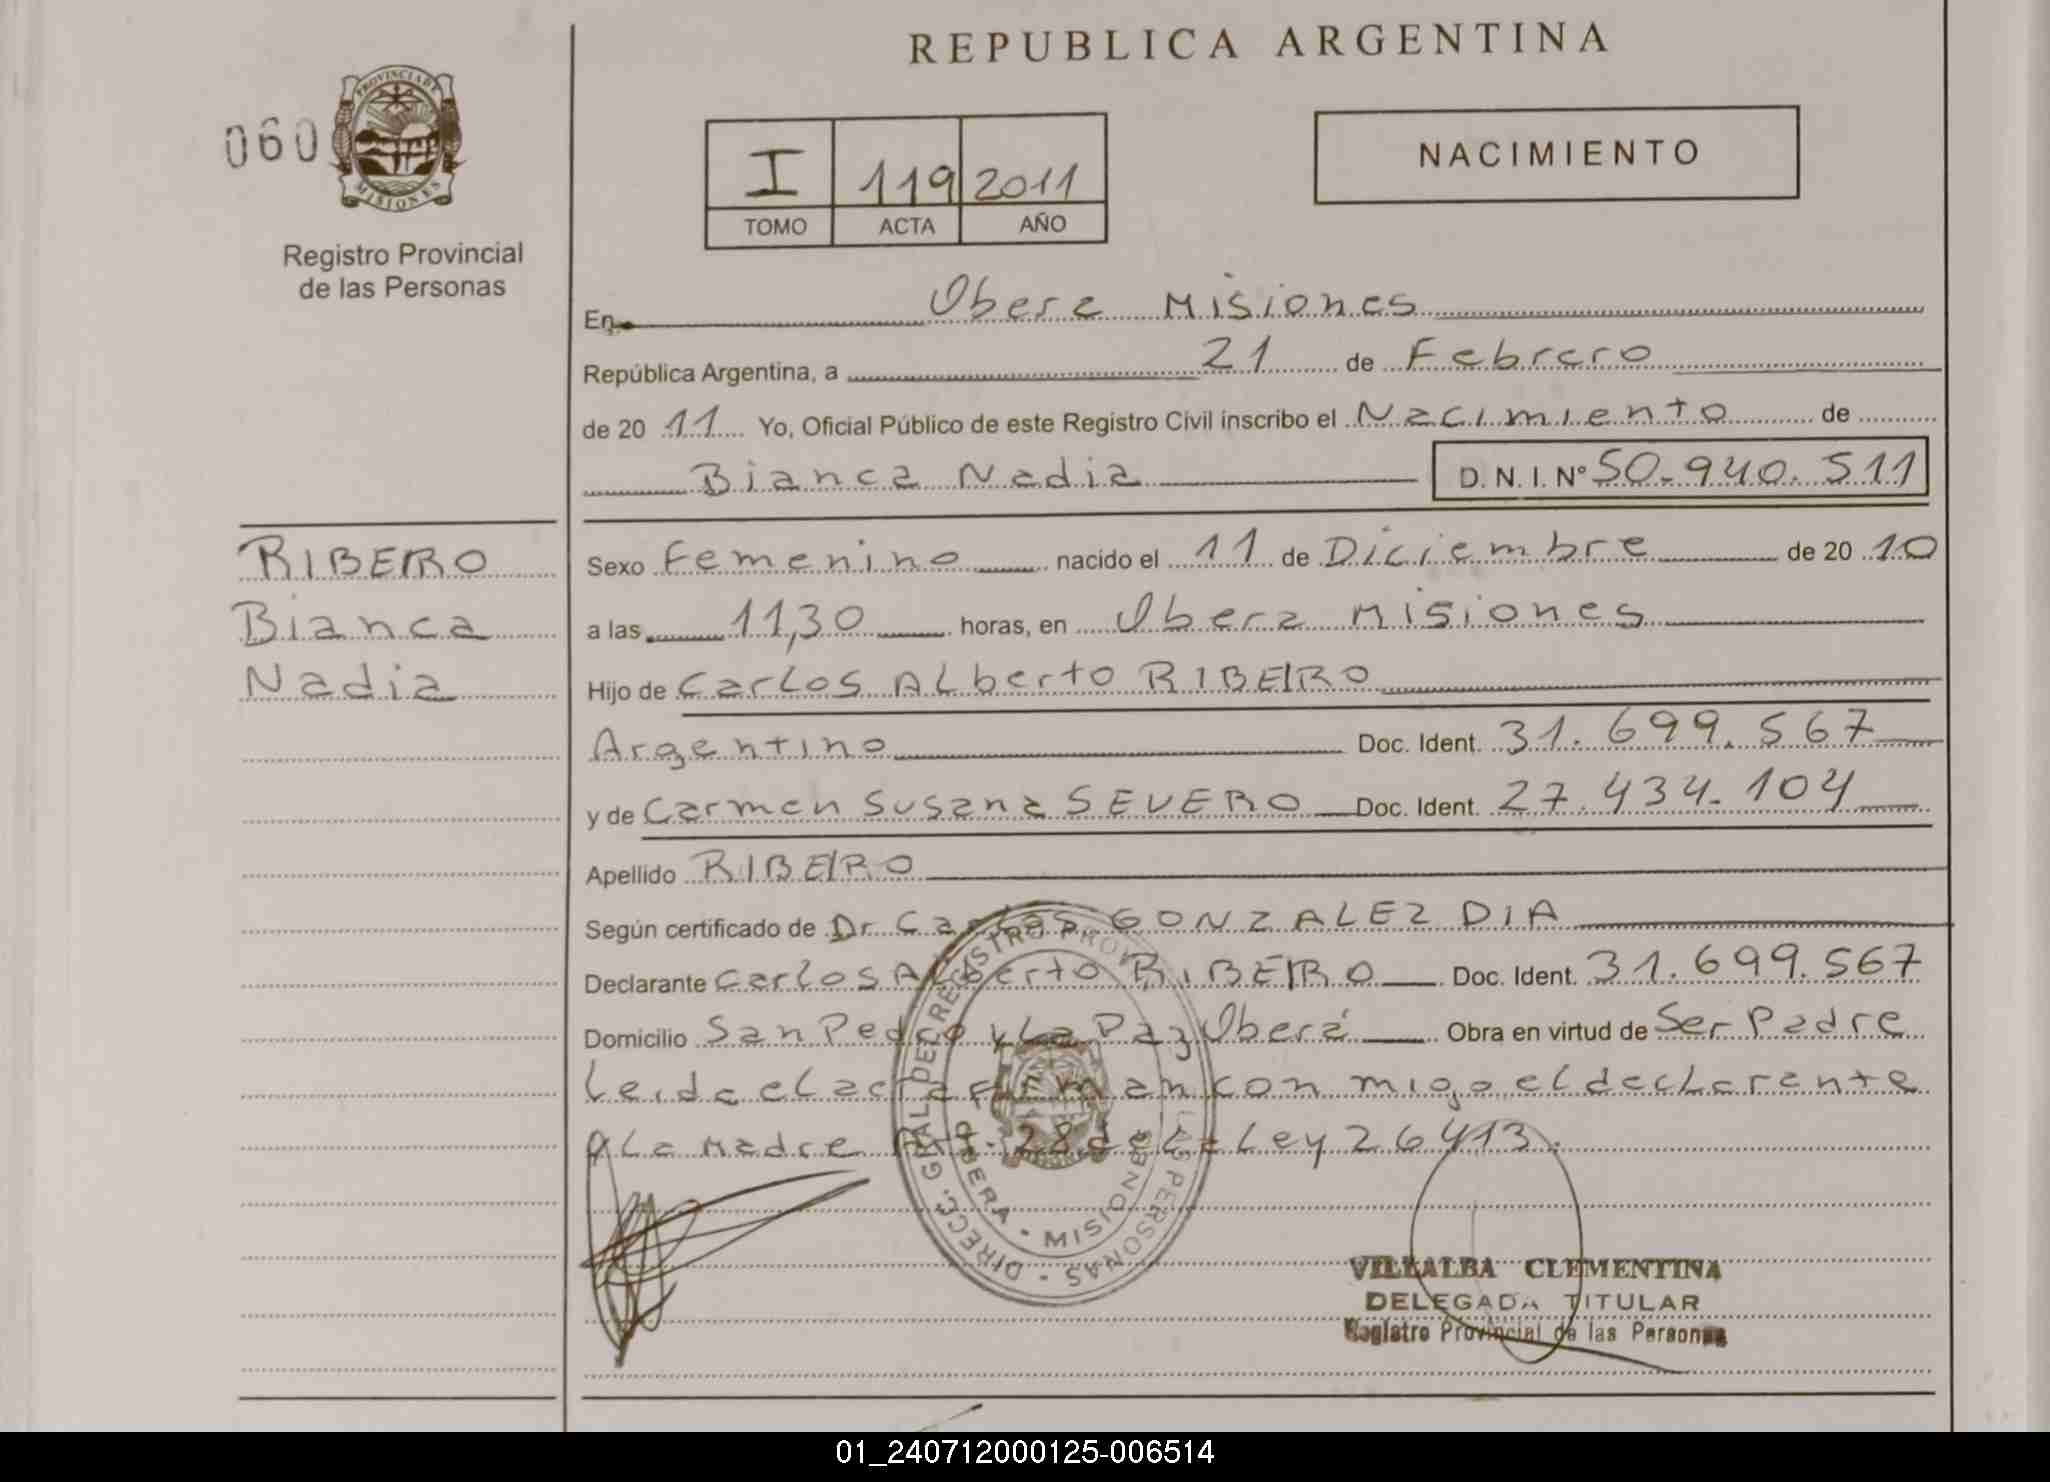 REPUBLICA ARGENTINA
060
PROVINCIA DE
MISIONES
Registro Provincial
de las Personas
I 119 2011
TOMO ACTA AÑO
NACIMIENTO
En Obera Misiones
República Argentina, a 21 de Febrero
de 20 11 Yo, Oficial Público de este Registro Civil inscribo el Nacimiento de
Bianca Nadia D. N. I. Nº 50.940.511
RIBEIRO
Bianca
Nadia
Sexo Femenino nacido el 11 de Diciembre de 20 10
a las 11,30 horas, en Obera Misiones
Hijo de Carlos Alberto RIBEIRO
Argentino Doc. Ident. 31.699.567
y de Carmen Susana SEVERO Doc. Ident. 27.434.104
Apellido RIBEIRO
Según certificado de Dr Carlos GONZALEZ DIA
Declarante Carlos Alberto RIBEIRO Doc. Ident. 31.699.567
Domicilio San Pedro y La Paz Oberá Obra en virtud de Ser Padre
Leida el acta firman con migo el declarante
A La Madre Art. 28 de La Ley 26413.
DIRECC. GRAL DEL REGISTRO PROV. LAS PERSONAS
OBERA - MISIONES
VILLALBA CLEMENTINA
DELEGADA TITULAR
Registro Provincial de las Personas
01_240712000125-006514